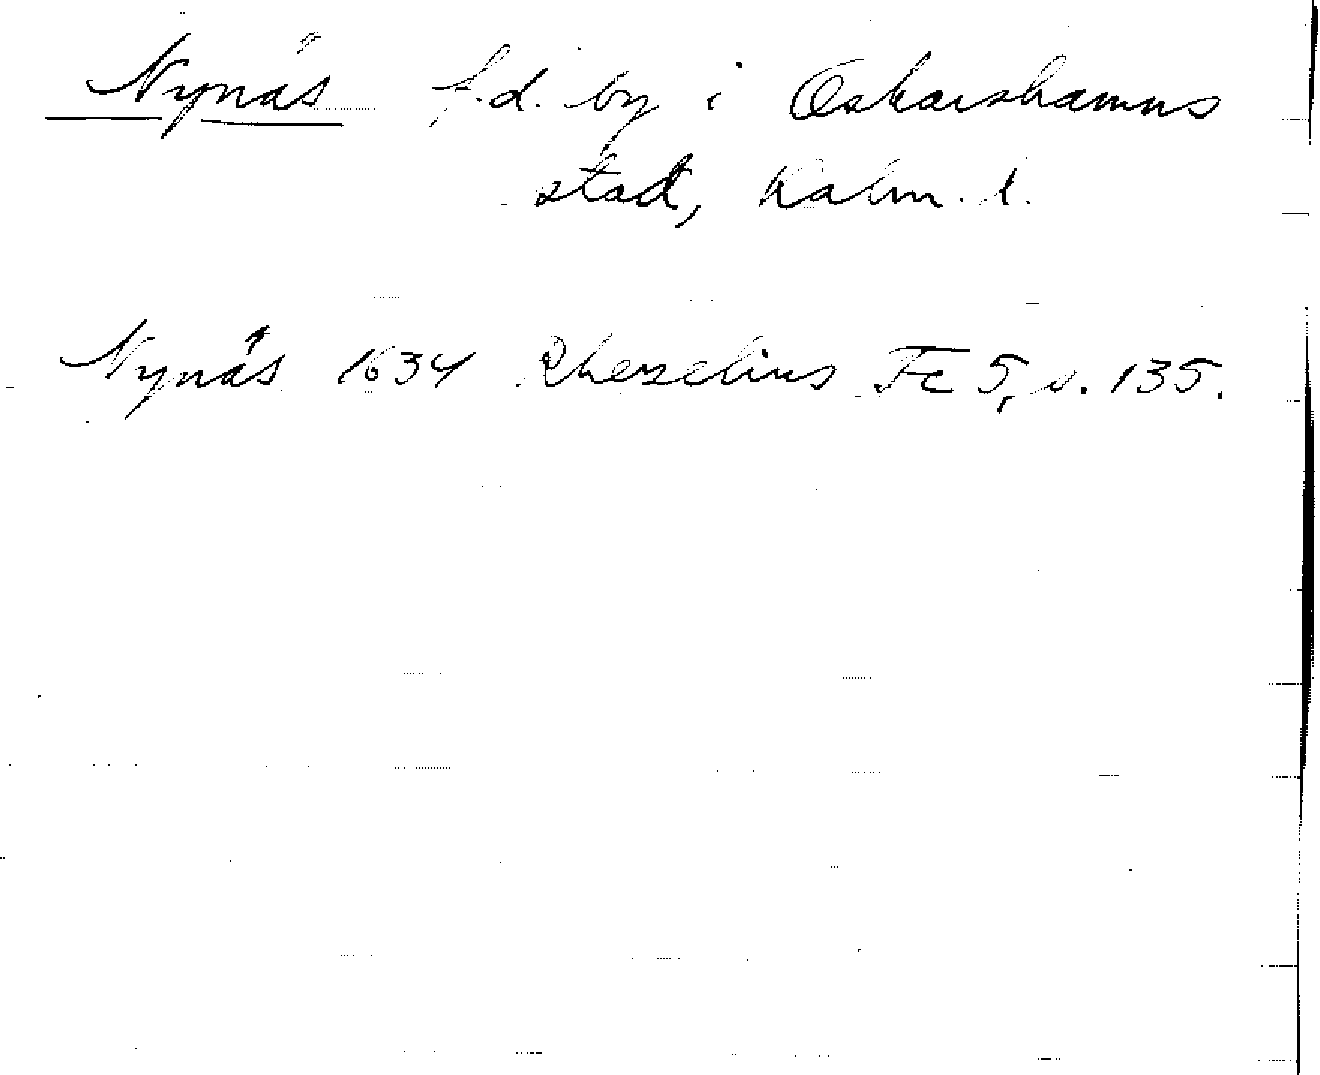 Nynäs f.d. by i Oskarshamns
stad, Kalm. l.
Nynäs 1634 Rhezelius Fc 5, s. 135.